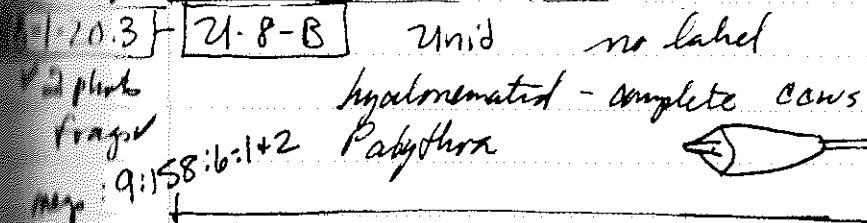 1.20.3 21.8-B Unid no label
✓ 2 photo hyalonematid - complete
frags ✓ Palythoa
9:158:6:1+2